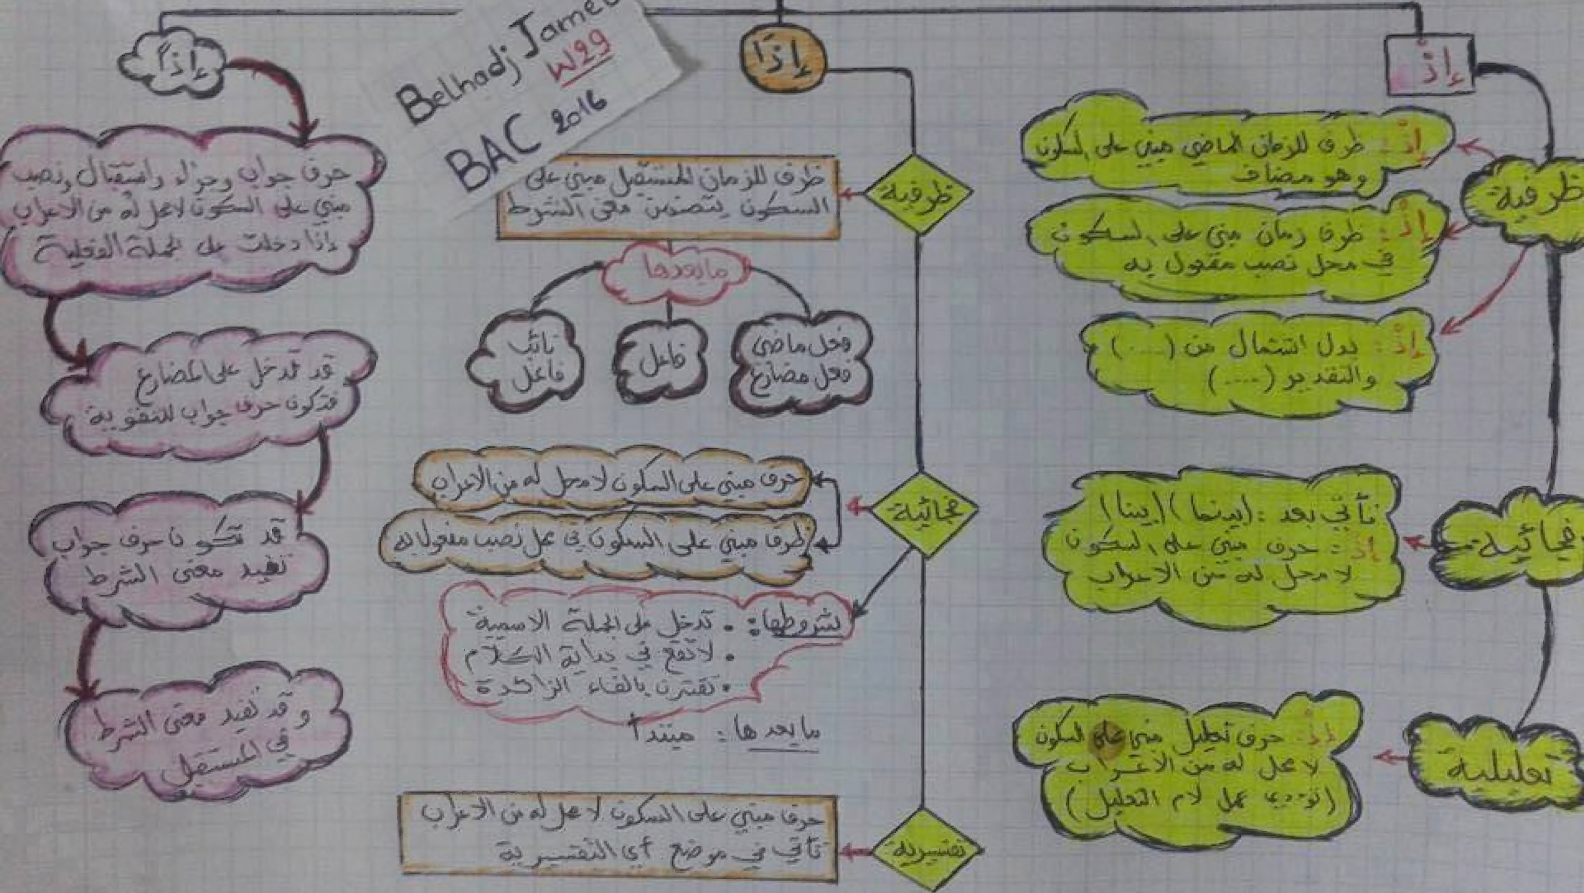 إذْ
ظرفية
إذْ: ظرف للزمان الماضي مبني على السكون
وهو مضاف
إذْ: ظرف زمان مبني على السكون
في محل نصب مفعول به
إذْ: بدل اشتمال من (....)
والتقدير (....)
فجائية
تأتي بعد: (بينما) (بينا)
إذْ: حرف مبني على السكون
لا محل له من الاعراب
تعليلية
إذْ: حرف تعليل مبني على السكون
لا محل له من الاعراب
عمل لام التعليل)
إذَا
Belhadj Jamel
W29
BAC 2016
ظرفية
ظرف للزمان المستقبل مبني على
السكون يتضمن معنى الشرط
مابعدها
فعل ماضي
فعل مضارع
فاعل
نائب
فاعل
فجائية
حرف مبني على السكون لا محل له من الاعراب
ظرف مبني على السكون في محل نصب مفعول به
شروطها: • تدخل على الجملة الاسمية
• لا تقع في بداية الكلام
• تقترن بالفاء الزائدة
ما بعدها: مبتدأ
تفسيرية
حرف مبني على السكون لا محل له من الاعراب
تأتي في موضع أي التفسيرية
إذًا
حرف جواب وجزاء واستقبال ونصب
مبني على السكون لا محل له من الاعراب
إذا دخلت على الجملة الفعلية
قد تدخل على المضارع
فتكون حرف جواب للتقوية
قد تكون حرف جواب
تفيد معنى الشرط
و قد تفيد معنى الشرط
في المستقبل